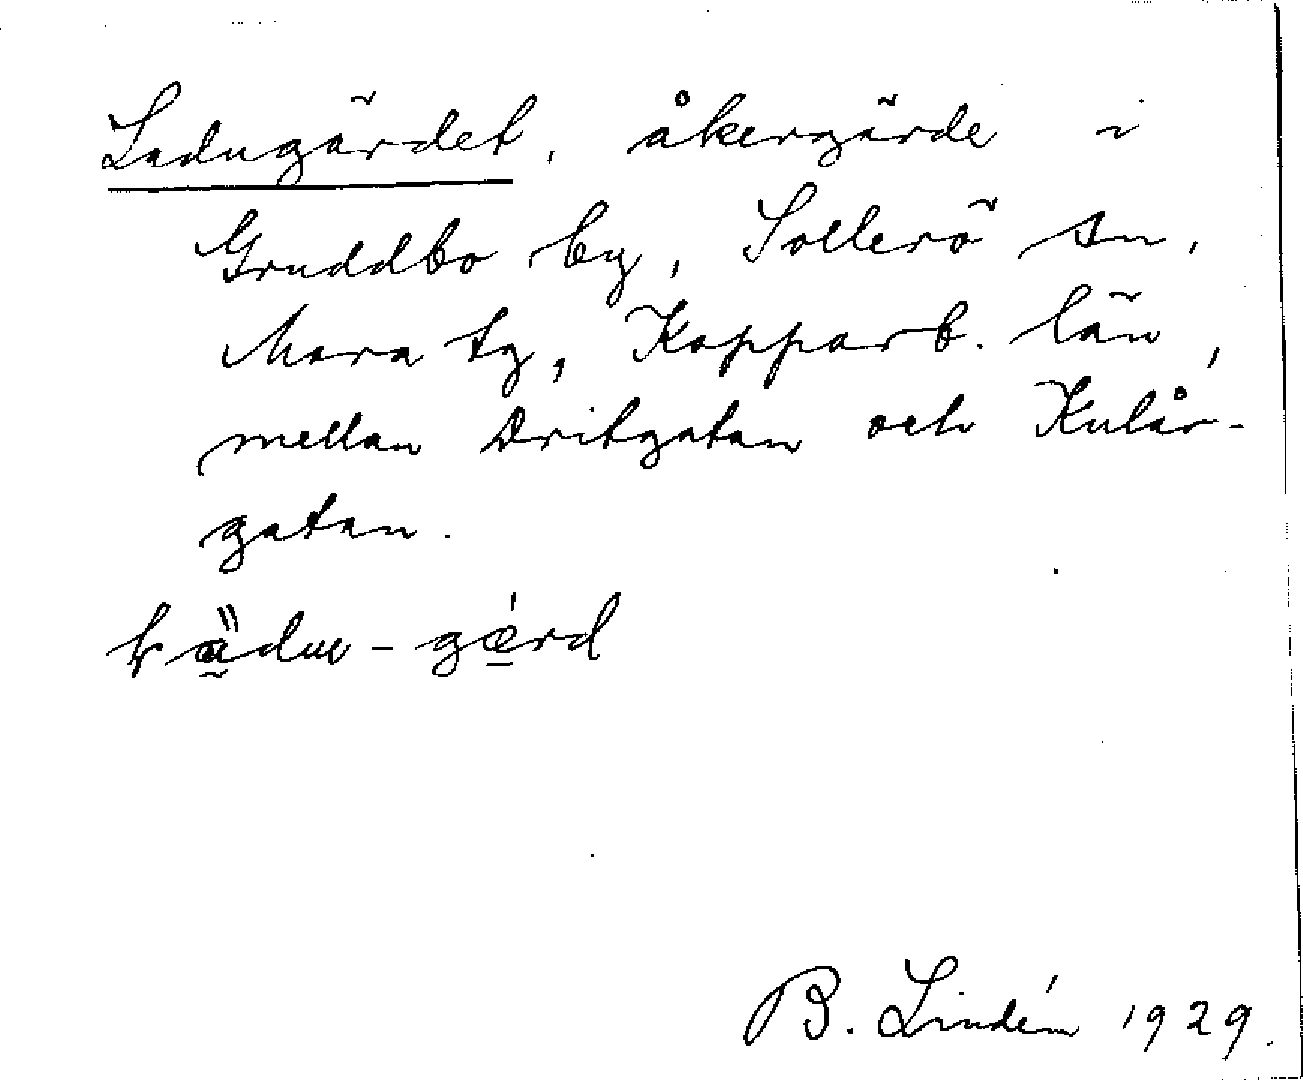 Ladugärdet, åkergärde i
Gruddbo by, Sollerö sn,
Mora tg, Kopparb. län,
mellan Dritgatan och Kulår-
gatan.
B. Lindén 1929.